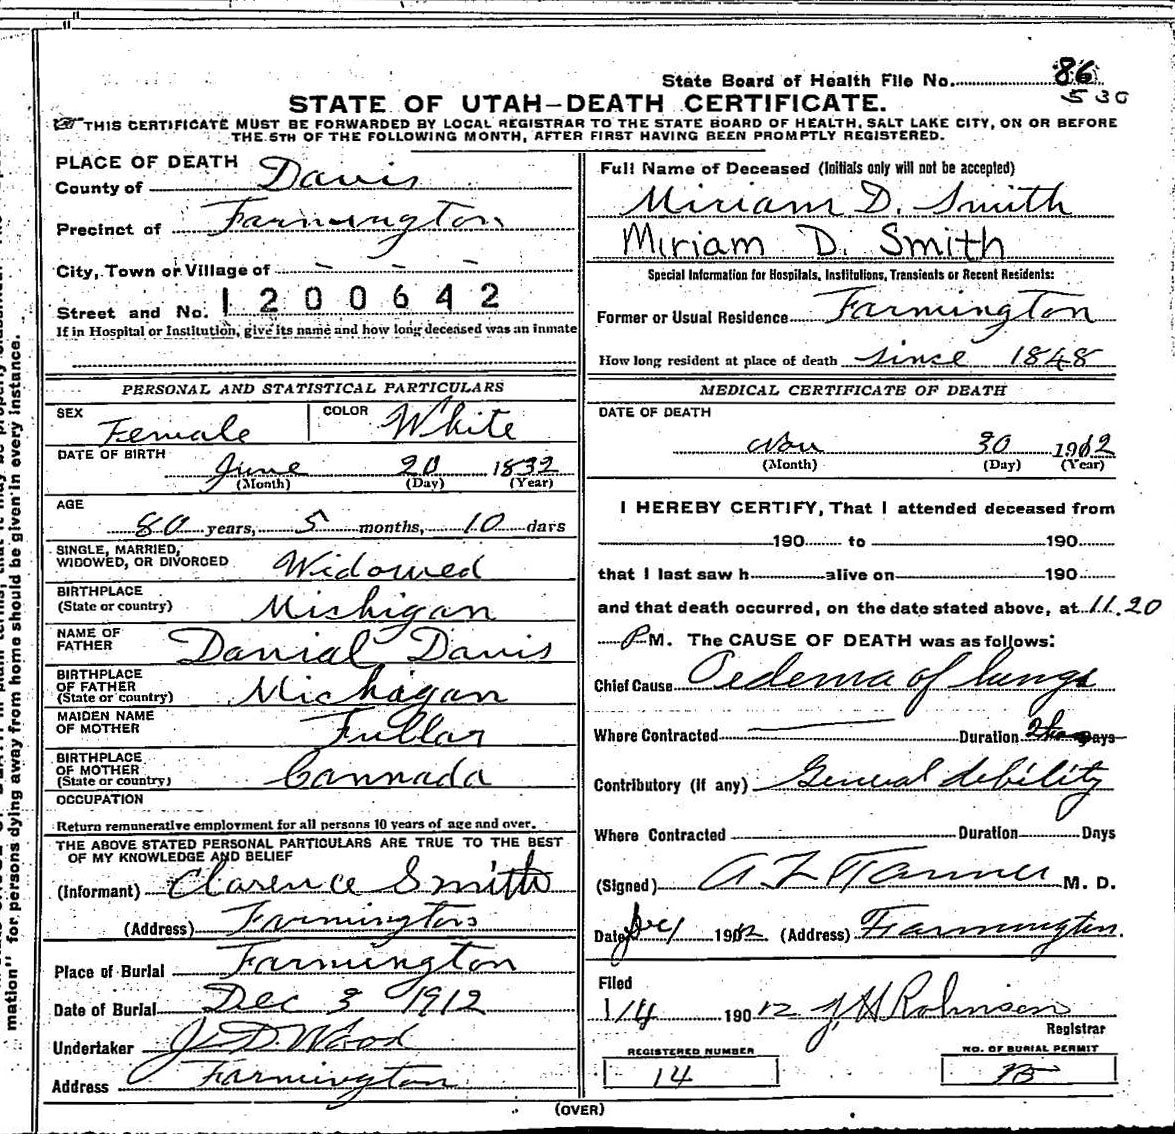 State Board of Health File No. 86
530
STATE OF UTAH-DEATH CERTIFICATE.
THIS CERTIFICATE MUST BE FORWARDED BY LOCAL REGISTRAR TO THE STATE BOARD OF HEALTH, SALT LAKE CITY, ON OR BEFORE
THE 5TH OF THE FOLLOWING MONTH, AFTER FIRST HAVING BEEN PROMPTLY REGISTERED.
PLACE OF DEATH
County of Davis
Precinct of Farmington
City, Town or Village of - - - -
Street and No. 1200642
If in Hospital or Institution, give its name and how long deceased was an inmate
PERSONAL AND STATISTICAL PARTICULARS
SEX Female COLOR White
DATE OF BIRTH
June 20 1832
(Month) (Day) (Year)
AGE
80 years, 5 months, 10 days
SINGLE, MARRIED,
WIDOWED, OR DIVORCED Widowed
BIRTHPLACE
(State or country) Michigan
NAME OF
FATHER Danial Davis
BIRTHPLACE
OF FATHER
(State or country) Michigan
MAIDEN NAME
OF MOTHER Fullar
BIRTHPLACE
OF MOTHER
(State or country) Cannada
OCCUPATION
Return remunerative employment for all persons 10 years of age and over.
THE ABOVE STATED PERSONAL PARTICULARS ARE TRUE TO THE BEST
OF MY KNOWLEDGE AND BELIEF
(Informant) Clarence Smith
(Address) Farmington
Place of Burial Farmington
Date of Burial Dec 3 1912
Undertaker J D Wood
Address Farmington
Full Name of Deceased (Initials only will not be accepted)
Miriam D. Smith
Miriam D. Smith
Special Information for Hospitals, Institutions, Transients or Recent Residents:
Former or Usual Residence Farmington
How long resident at place of death since 1848
MEDICAL CERTIFICATE OF DEATH
DATE OF DEATH
Nov 30 1912
(Month) (Day) (Year)
I HEREBY CERTIFY, That I attended deceased from
190 to 190
that I last saw h alive on 190
and that death occurred, on the date stated above, at 11.20
P M. The CAUSE OF DEATH was as follows:
Chief Cause Oedema of lungs
Where Contracted Duration Days
Contributory (if any) General debility
Where Contracted Duration Days
(Signed) A Z Tanner M. D.
Date Dec 1 1912 (Address) Farmington.
Filed
1/4 190 12 J H Robinson
Registrar
REGISTERED NUMBER
14
NO. OF BURIAL PERMIT
15
(OVER)
mation" for persons dying away from home should be given in every instance.